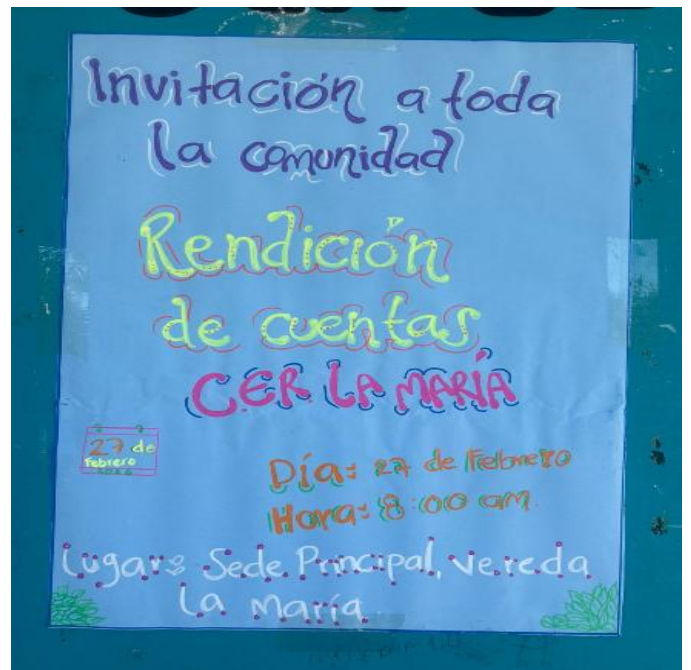 Invitación a toda
la comunidad
Rendición
de cuentas
C.E.R. LA MARÍA
27 de
Febrero
Día: 27 de Febrero
Hora: 8:00 am.
Lugar: Sede Principal, vereda
La María.